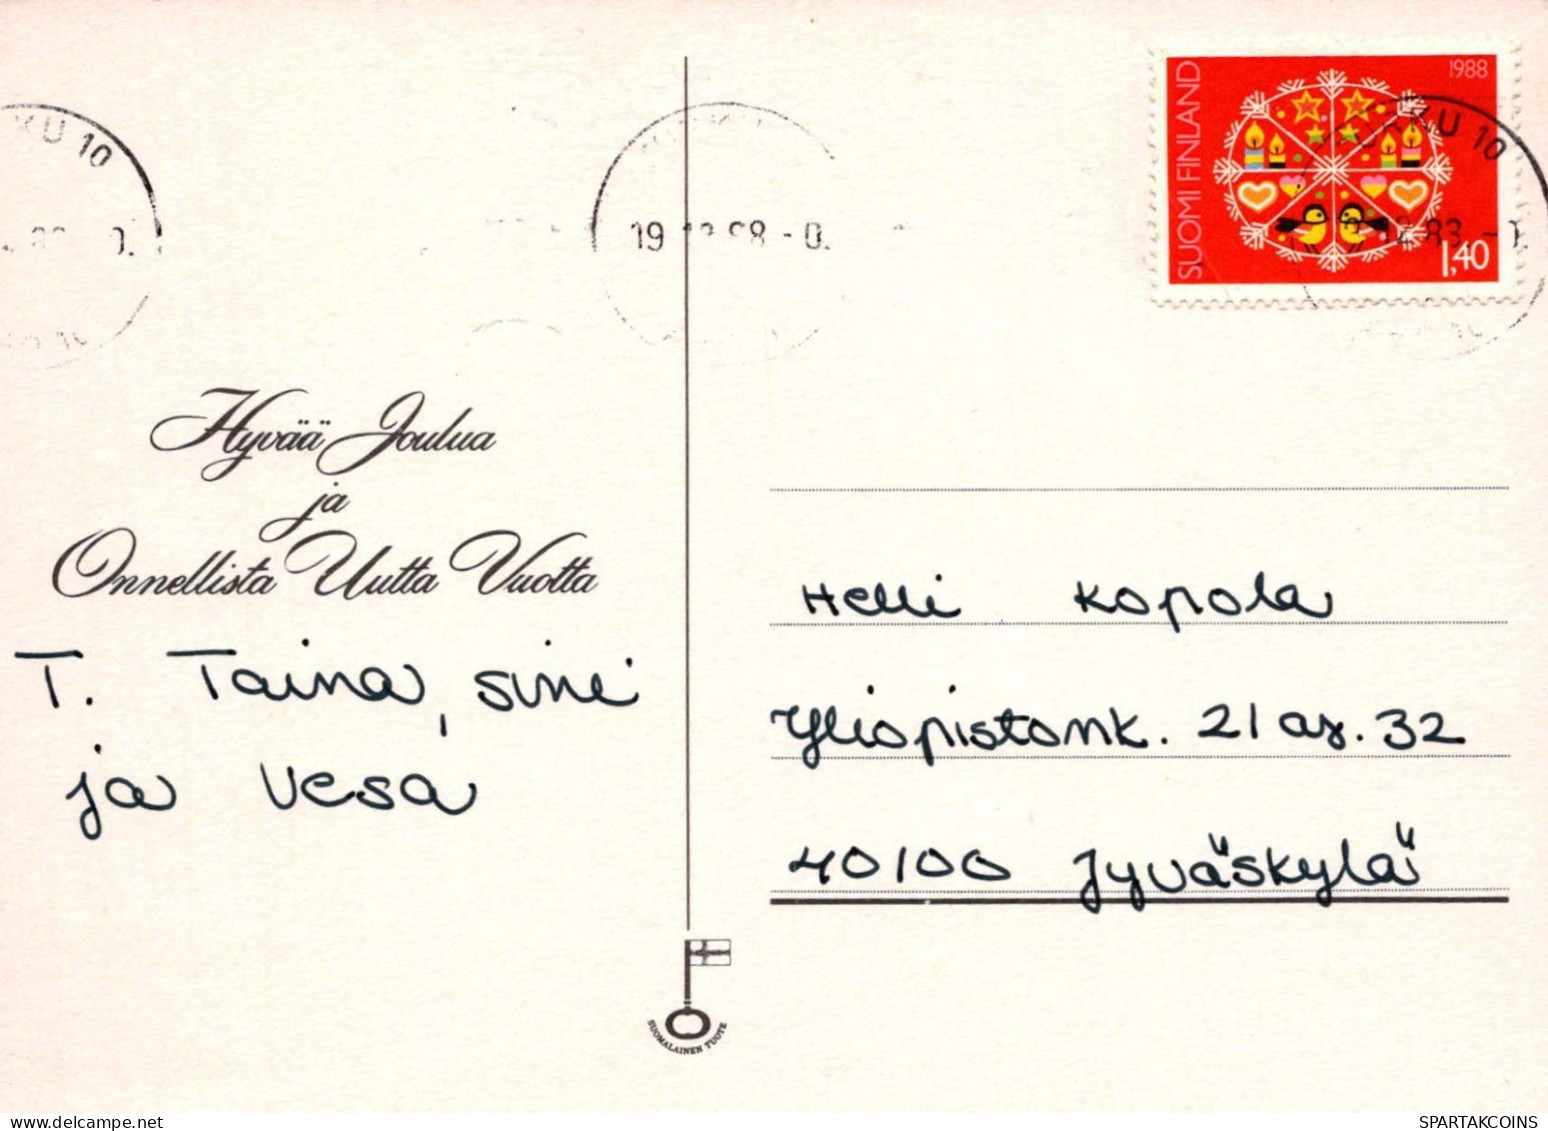 KU 10
19 12 88 - 0.
KU 10
SUOMI FINLAND
1988
1,40
Hyvää Joulua
ja
Onnellista Uutta Vuotta
T. Taina, Sini
ja Vesa
Helli Kopola
Yliopistonk. 21 as. 32
40100 Jyväskylä
SUOMALAINEN TUOTE
www.delcampe.net
SPARTAKCOINS